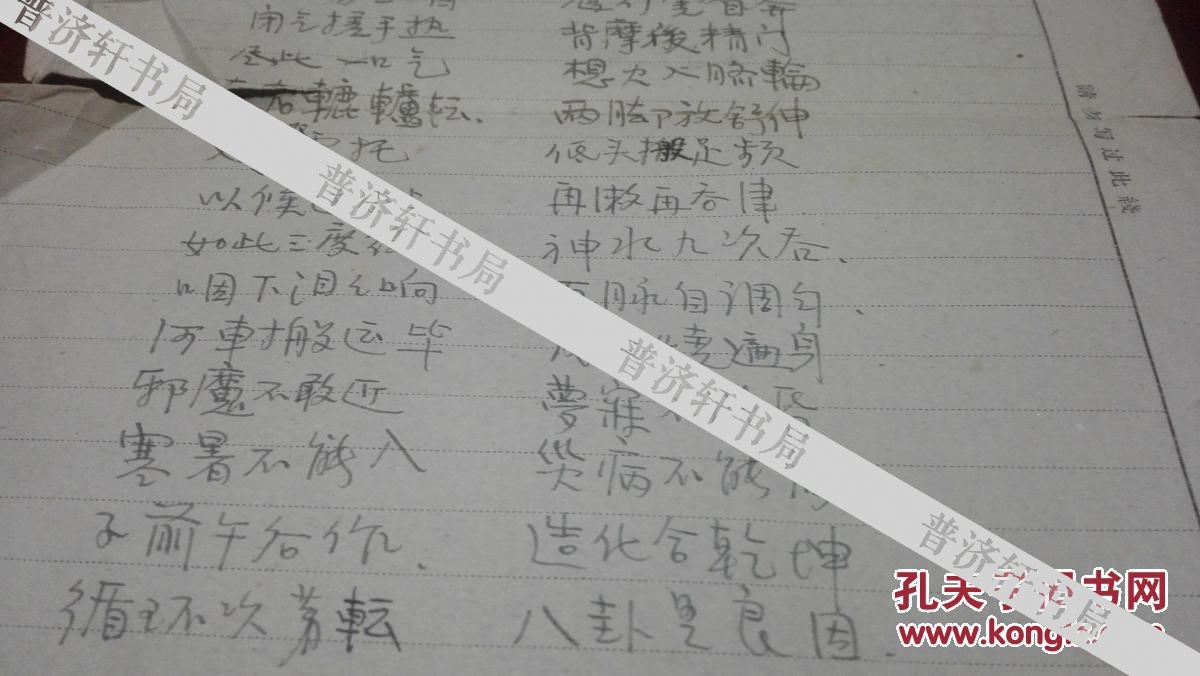 闭气搓手热 背摩後精门
尽此一口气 想火入脐輪
左右轆轤転. 两脚放舒伸
托 低头搬足频
以候 再漱再吞津
如此三度 神水九次吞.
咽下汩之响 脉自调匀.
河車搬运毕 遍身
邪魔不敢近 夢寐不
寒暑不能入 災病不能
子前午后作. 造化合乾坤
循环次第転 八卦是良因.
請勿写过此綫
普济轩书局
普济轩书局
普济轩书局
普济轩书局
孔夫子旧书网
www.kongfz.com